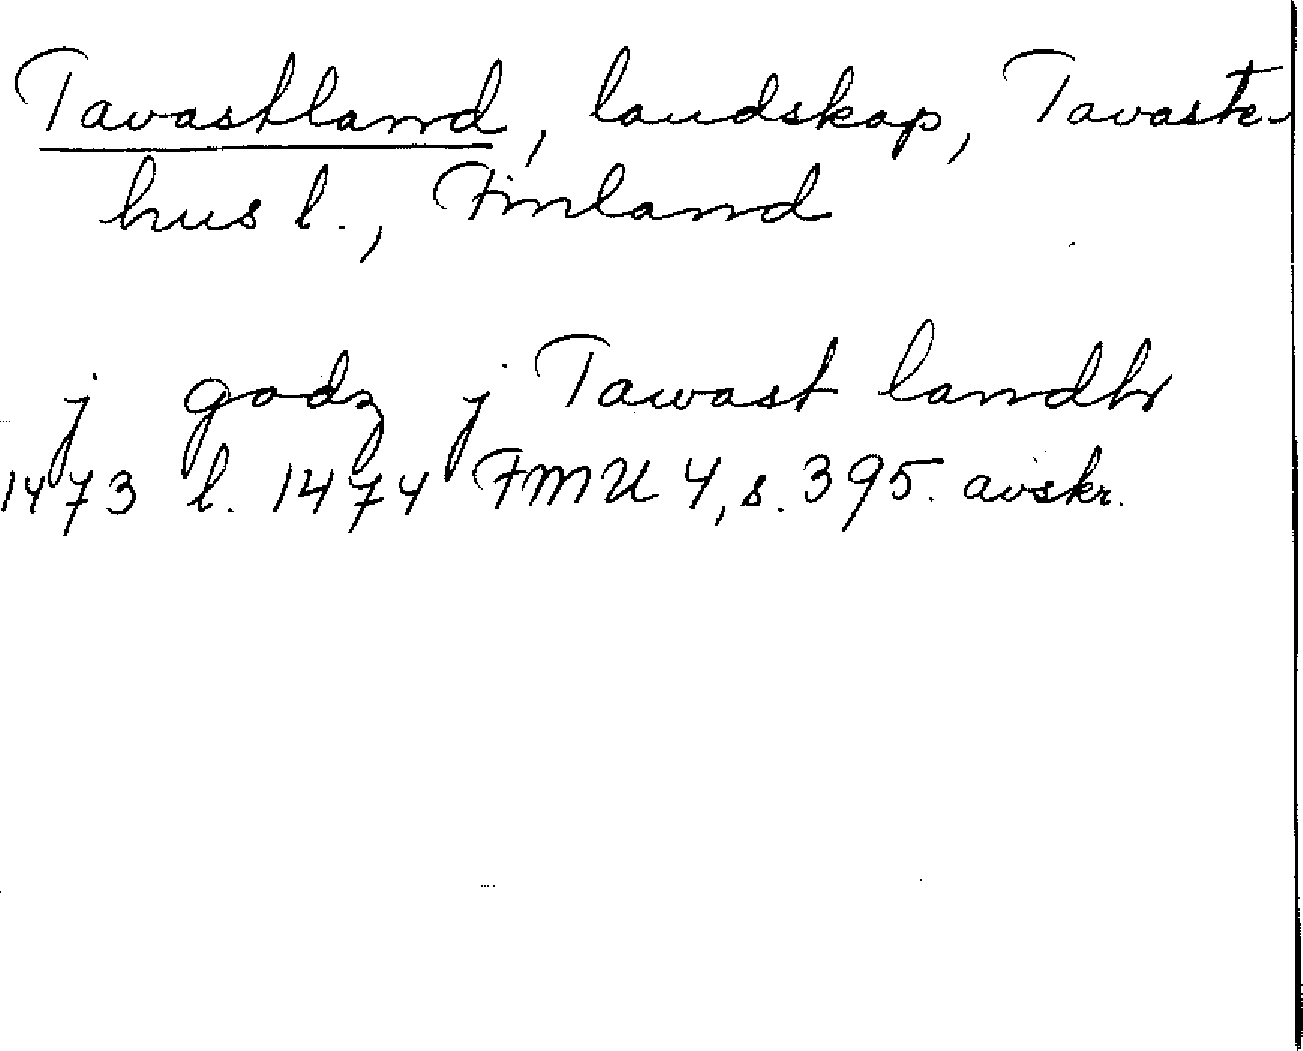 Tavastland, landskap, Tavaste-
hus l., Finland
j godz j Tawast landh
1473 l. 1474 FMU 4, s. 395. avskr.